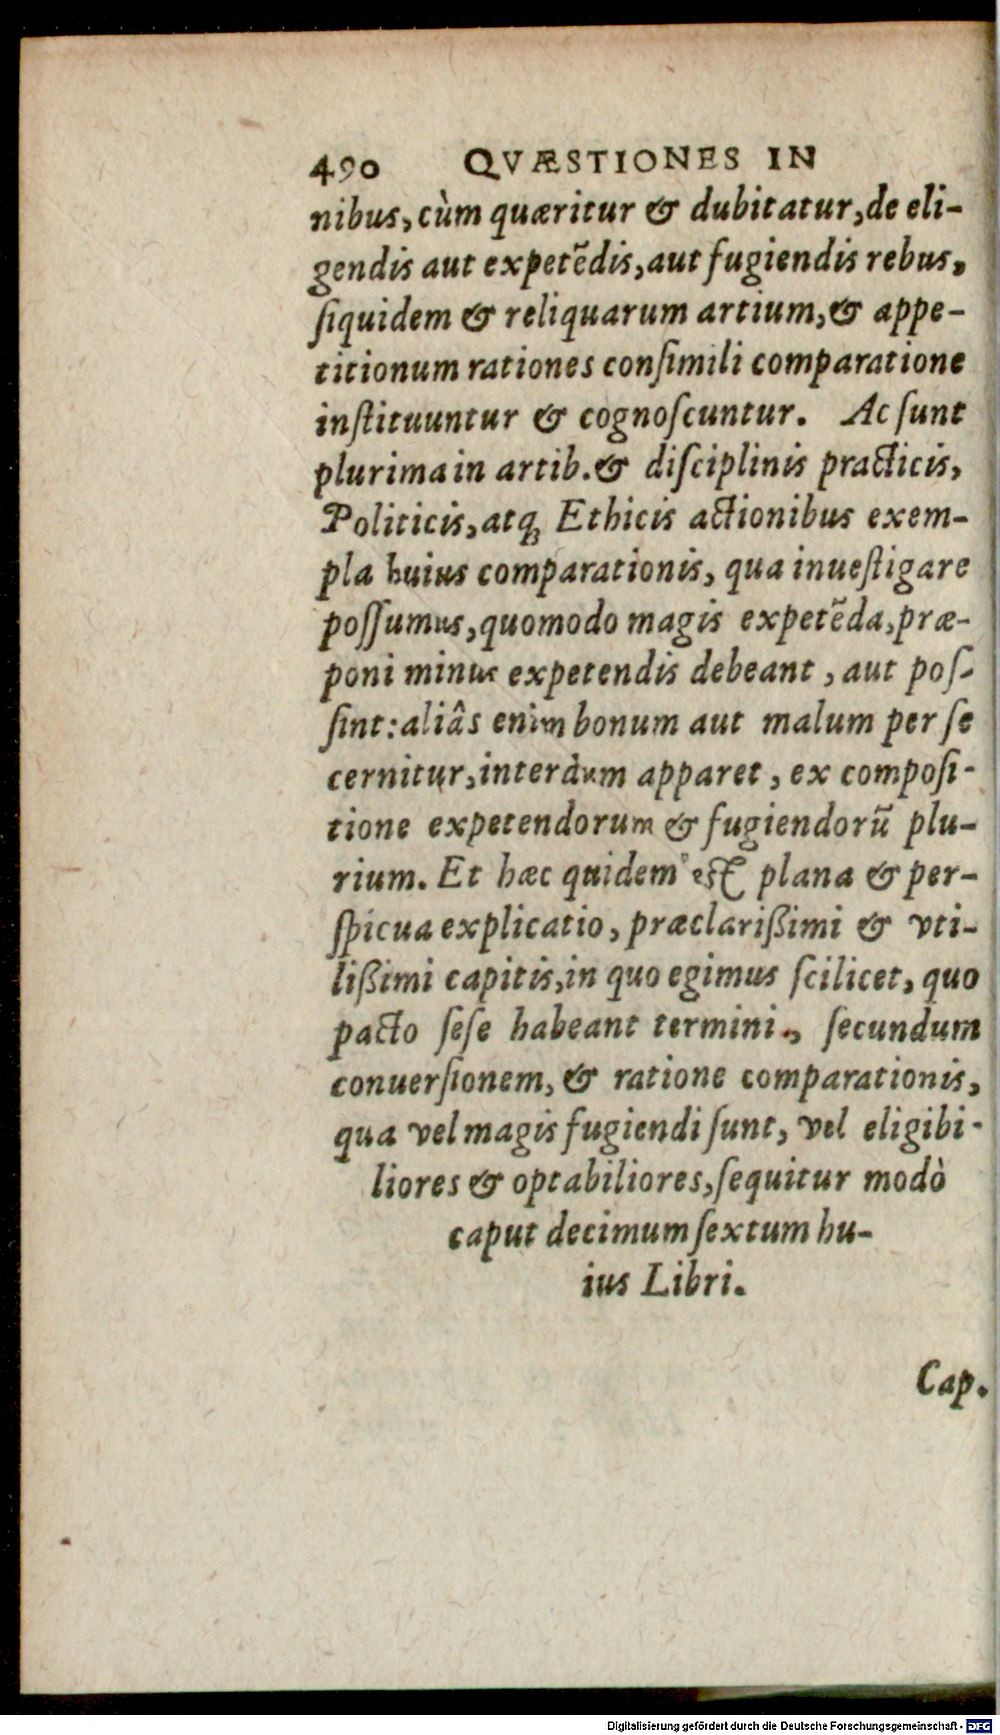 490 QVÆSTIONES IN
nibus, cùm quæritur & dubitatur, de eli-
gendis aut expetẽdis, aut fugiendis rebus,
ſiquidem & reliquarum artium, & appe-
titionum rationes conſimili comparatione
inſtituuntur & cognoſcuntur. Ac ſunt
plurima in artib. & diſciplinis practicis,
Politicis, atq; Ethicis actionibus exem-
pla huius comparationis, qua inueſtigare
poſſumus, quomodo magis expetẽda, præ-
poni minus expetendis debeant, aut poſ-
ſint: aliâs enim bonum aut malum per ſe
cernitur, interdum apparet, ex compoſi-
tione expetendorum & fugiendorũ plu-
rium. Et hæc quidem eſt plana & per-
ſpicua explicatio, præclarißimi & vti-
lißimi capitis, in quo egimus ſcilicet, quo
pacto ſeſe habeant termini, ſecundum
conuerſionem, & ratione comparationis,
qua vel magis fugiendi ſunt, vel eligibi-
liores & optabiliores, ſequitur modò
caput decimum ſextum hu-
ius Libri.
Cap.
Digitalisierung gefördert durch die Deutsche Forschungsgemeinschaft - DFG